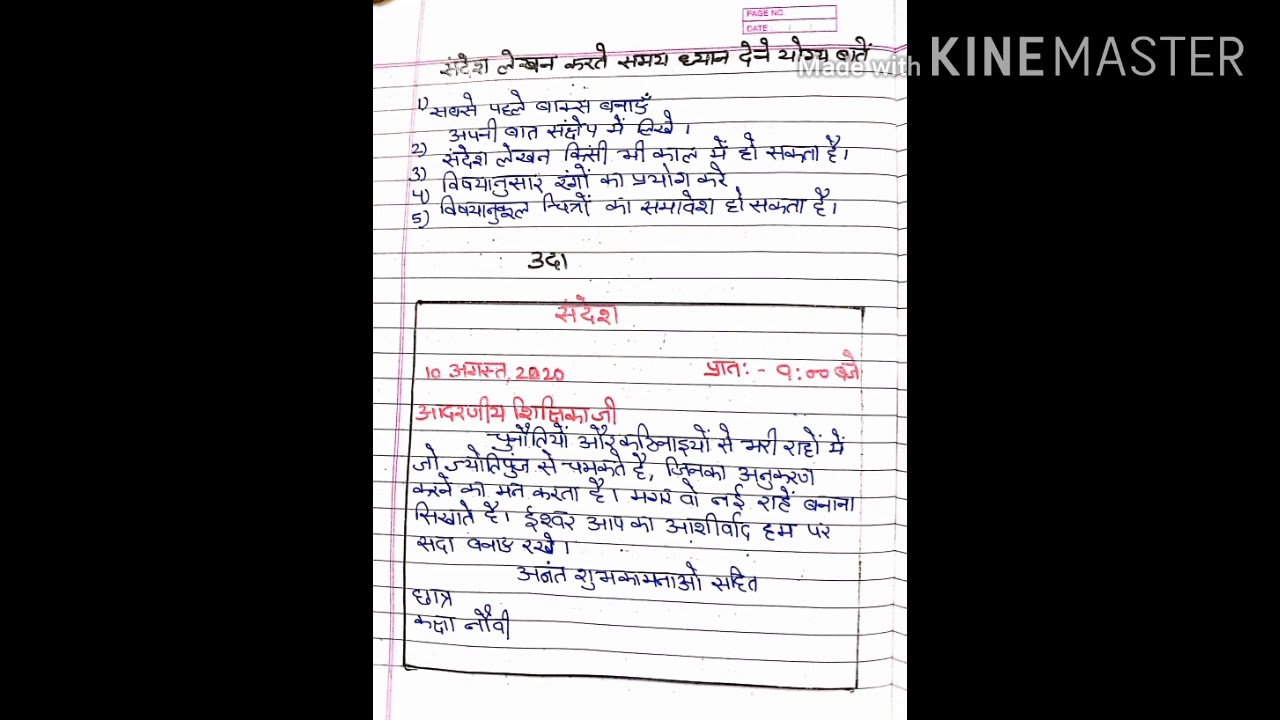 PAGE NO.
DATE
संदेश लेखन करते समय ध्यान देने योग्य बातें
Made with KINEMASTER
1) सबसे पहले बाक्स बनाएँ
अपनी बात संक्षेप में लिखे।
2) संदेश लेखन किसी भी काल में हो सकता है।
3) विषयानुसार रंगों का प्रयोग करे
4) विषयानुकूल चित्रों का समावेश हो सकता है।
5)
उदा
संदेश
10 अगस्त, 2020 प्रातः - 9:00 बजे
आदरणीय शिक्षिका जी
चुनौतियों और कठिनाइयों से भरी राहों में
जो ज्योतिपुंज से चमकते है, जिनका अनुकरण
करने का मन करता है। मगर वो नई राहें बनाना
सिखाते है। ईश्वर आप का आशीर्वाद हम पर
सदा बनाए रखे।
अनंत शुभकामनाओ सहित
छात्र
कक्षा नौवी